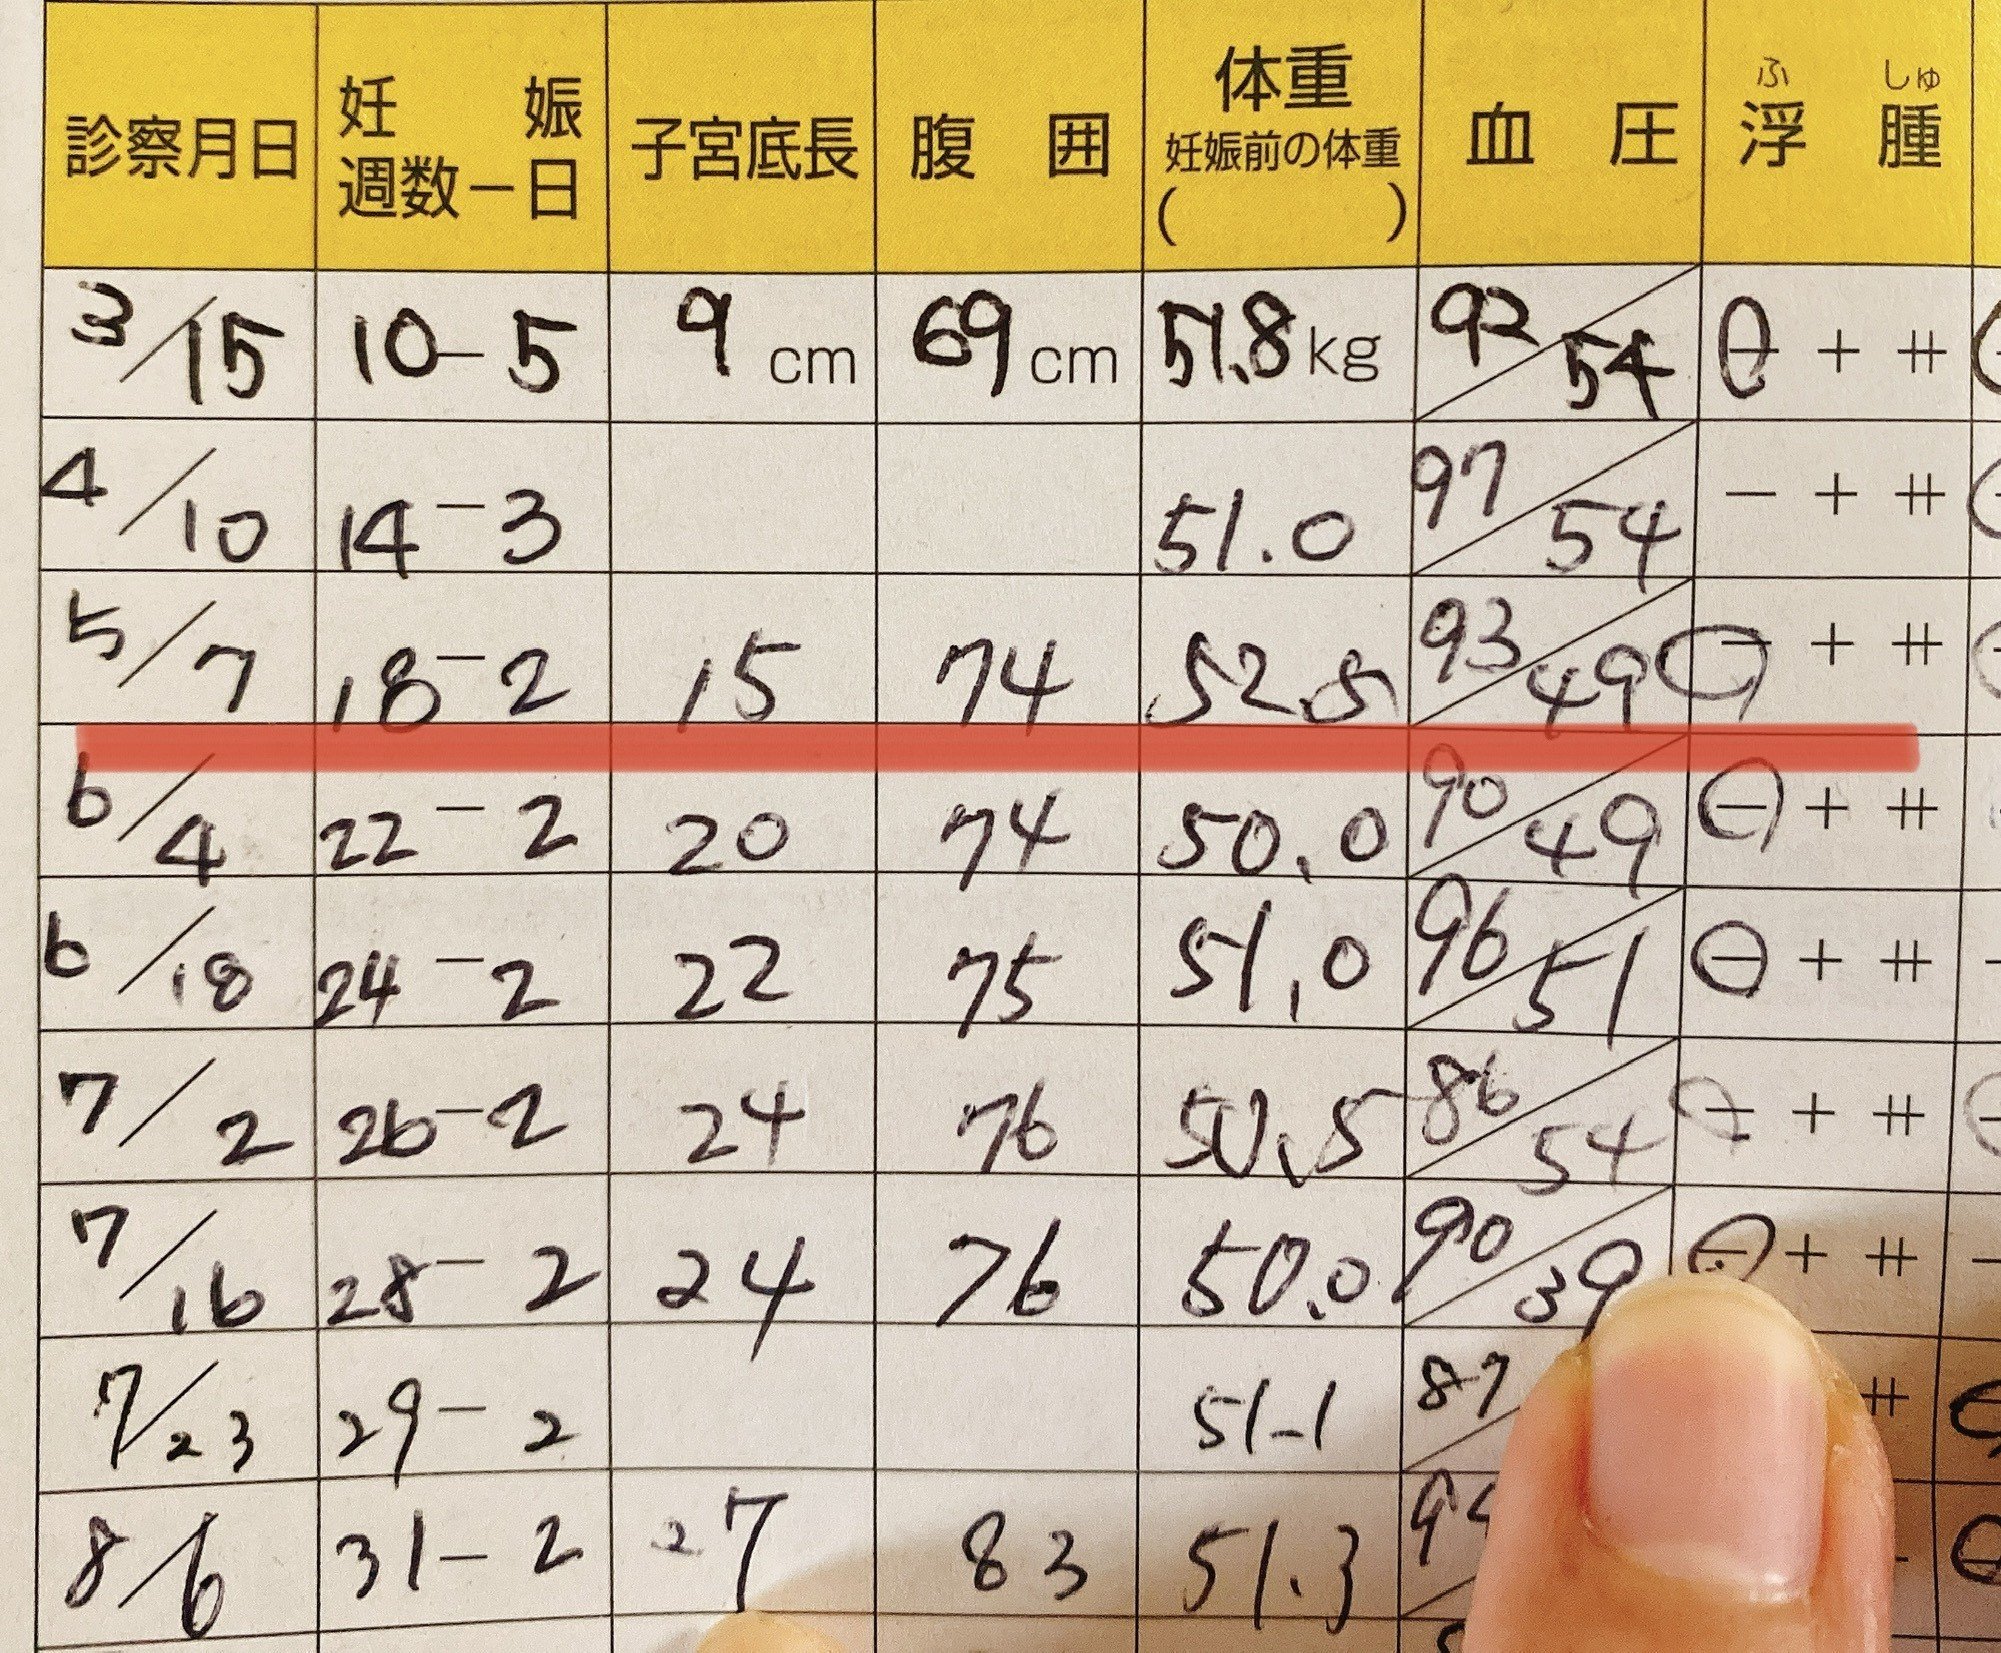 診察月日 妊娠週数－日 子宮底長 腹囲 体重 妊娠前の体重 ( ) 血圧 浮腫 ふしゅ
3/15 10-5 9cm 69cm 51.8kg 92/54 - + ⧺
4/10 14-3 51.0 97/54 - + ⧺
5/7 18-2 15 74 52.5 93/49 - + ⧺
6/4 22-2 20 74 50.0 90/49 - + ⧺
6/18 24-2 22 75 51.0 96/51 - + ⧺
7/2 26-2 24 76 50.5 86/54 - + ⧺
7/16 28-2 24 76 50.0 90/39 - + ⧺
7/23 29-2 51.1 87/ ⧺
8/6 31-2 27 83 51.3